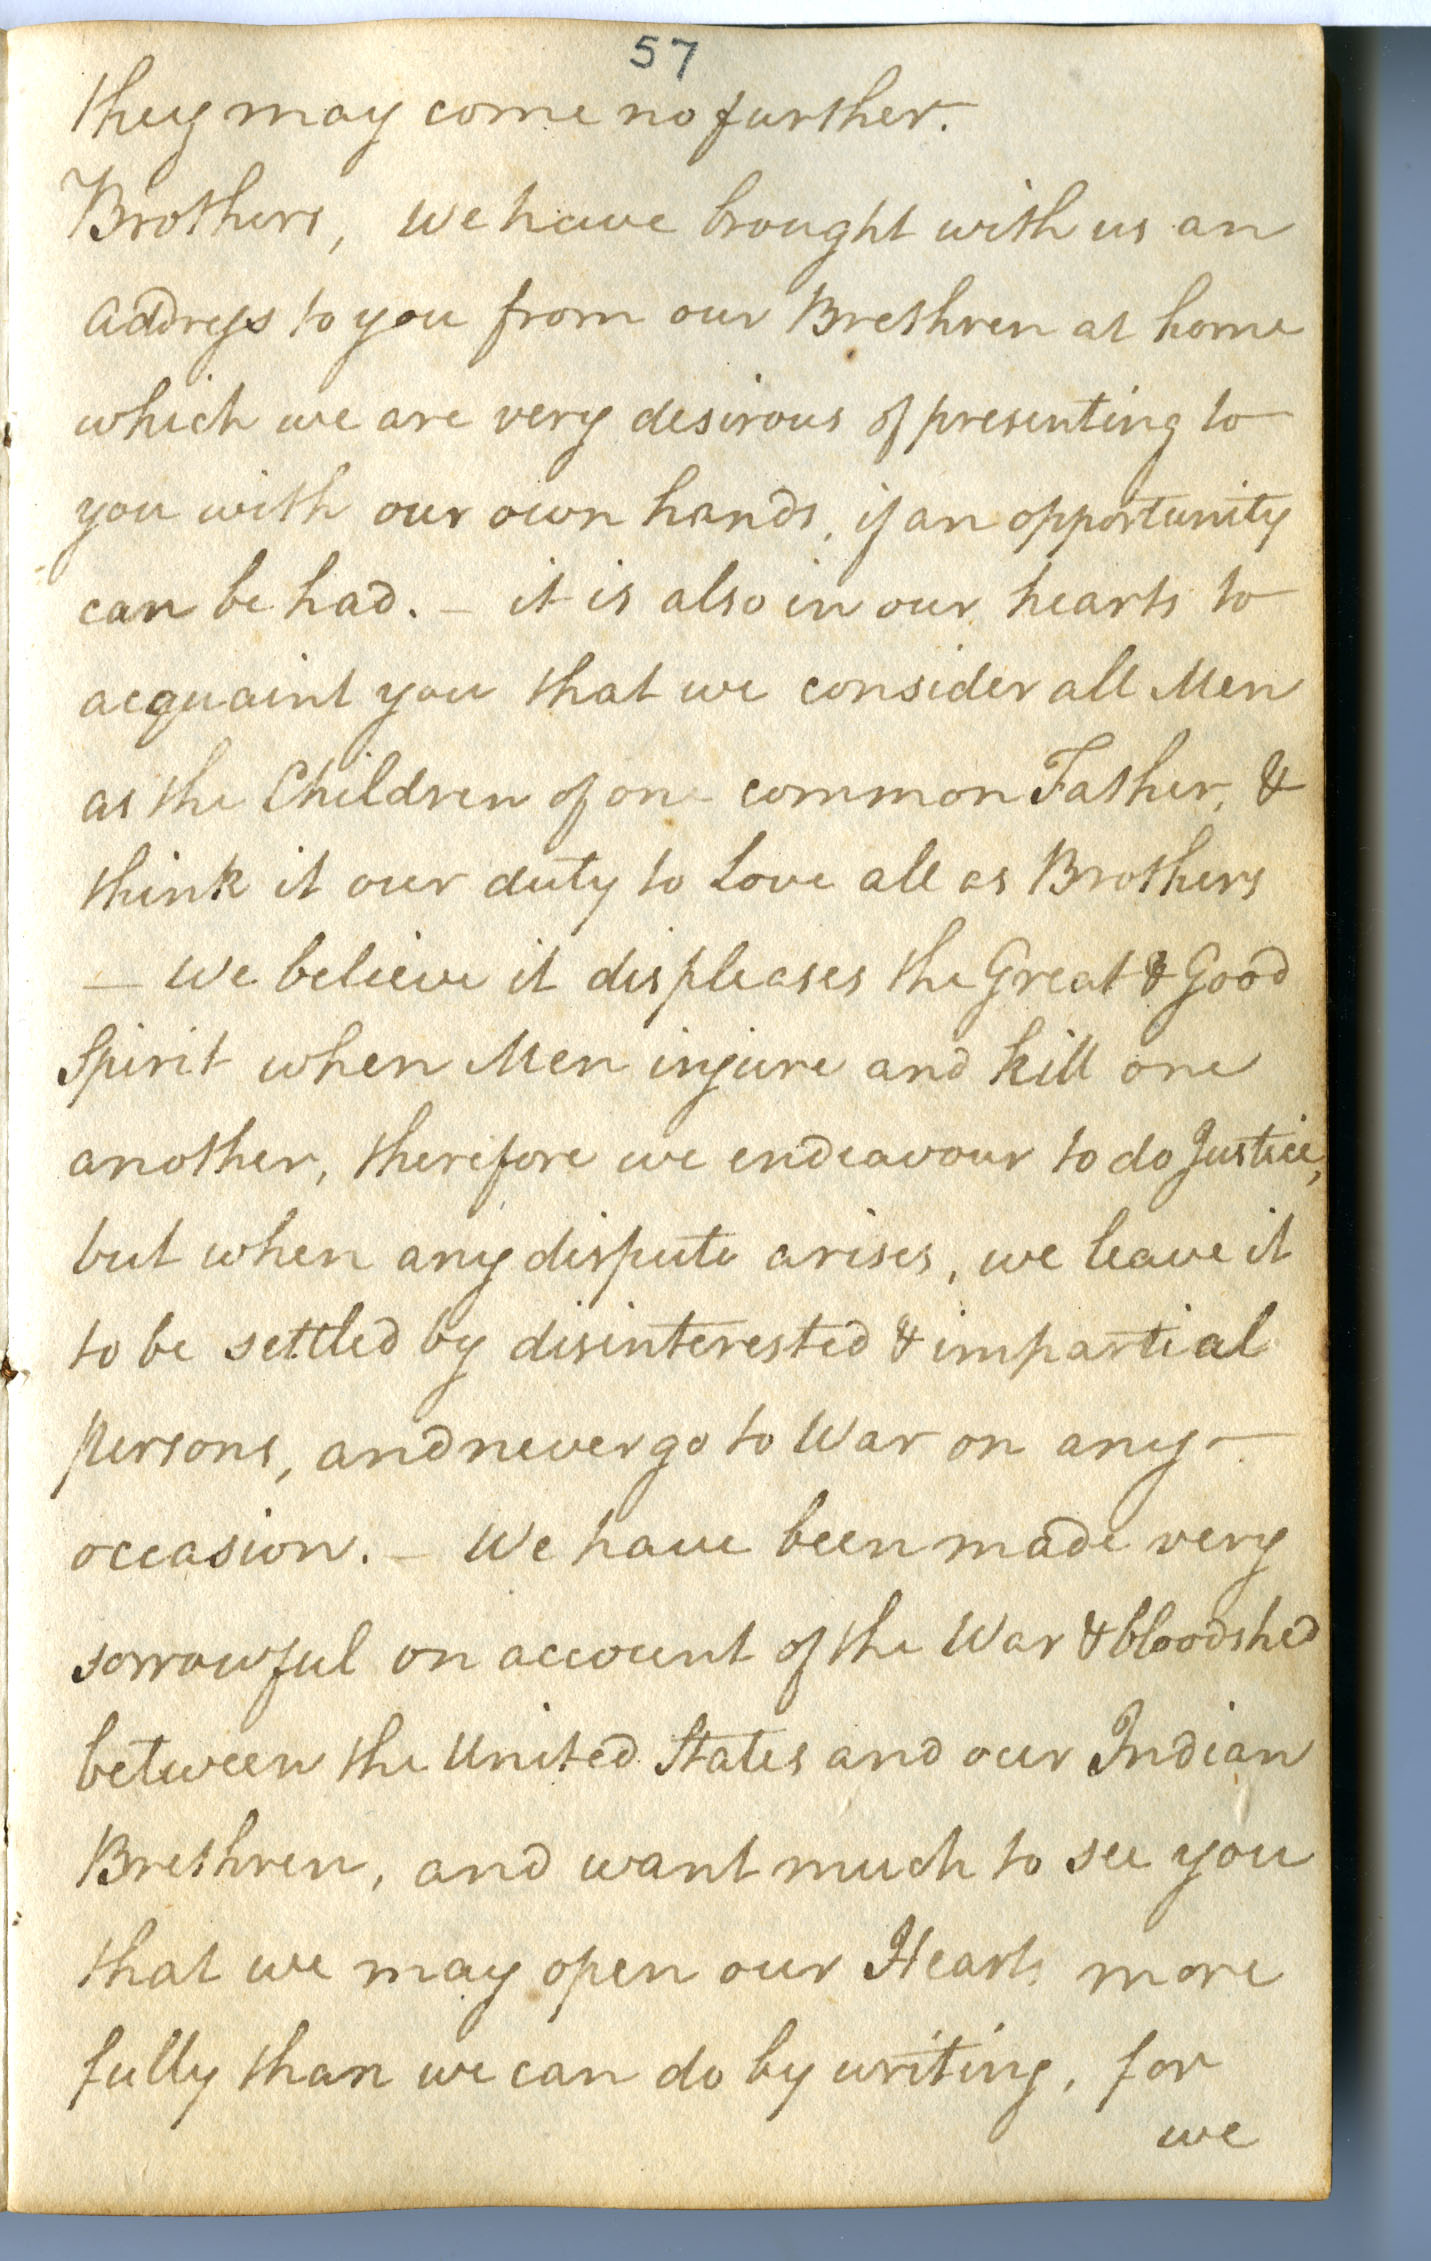 57
they may come no further.
Brothers, we have brought with us an
address to you from our Brethren at home
which we are very desirous of presenting to
you with our own hands, if an opportunity
can be had. – it is also in our hearts to
acquaint you that we consider all Men
as the Children of one common Father, &
think it our duty to Love all as Brothers
— We believe it displeases the Great & Good
Spirit when Men injure and kill one
another, therefore we endeavour to do Justice,
but when any dispute arises, we leave it
to be settled by disinterested & impartial
persons, and never go to War on any –
occasion. – We have been made very
sorrowful on account of the War & bloodshed
between the United States and our Indian
Brethren, and want much to see you
that we may open our Hearts more
fully than we can do by writing, for
we